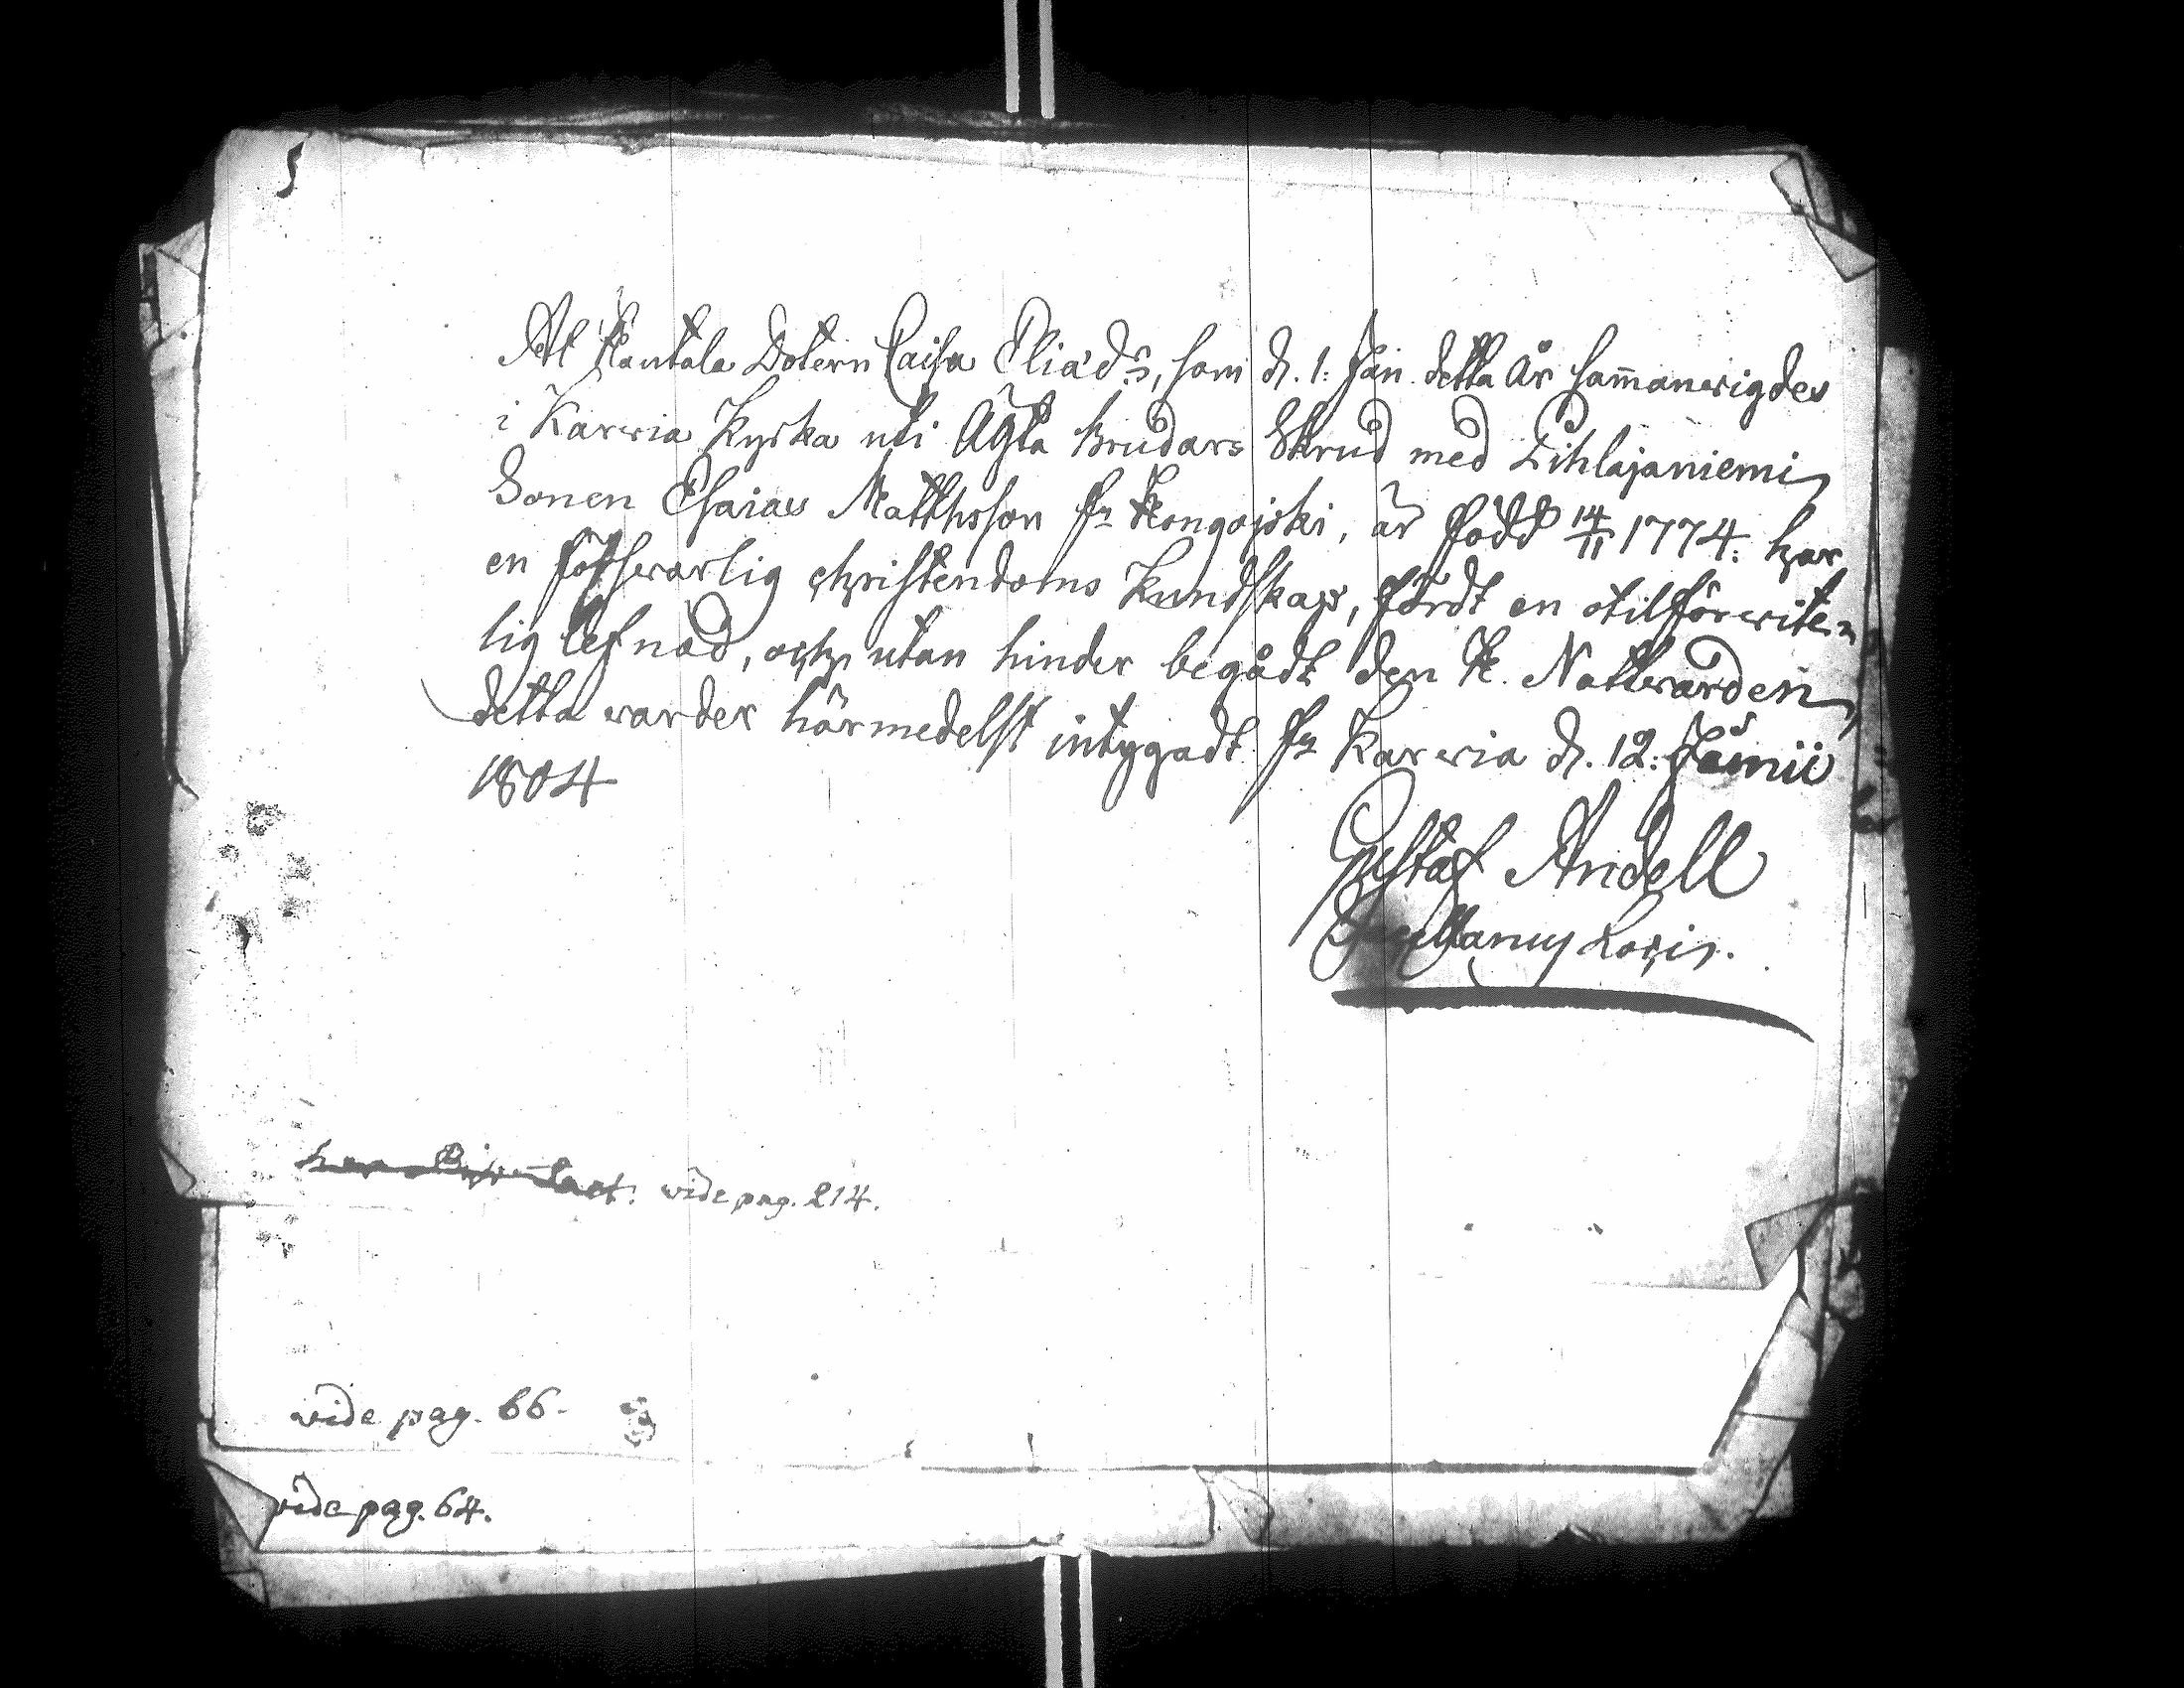 5
Att Kantala Dotern Caisa Eliæd:s, som d. 1: Jan. detta år sam̄anwigdes
i Karvia Kyrka uti Ägta Brudars Skrud med Pihlajaniemi
Sonen Esaias Matthsson fr Kongojoki, är född 14/11 1774: har
en försvarlig christendoms Kundskap, fördt en otilförvite-
lig lefnad, och utan hinder begådt den H. Nattvarden,
detta varder härmedelst intygadt fr Karvia d. 12: Junii
1804
Gustaf Andell
Sacellanus Loci.
vide pag. 214.
vide pag. 66.
vide pag. 64.